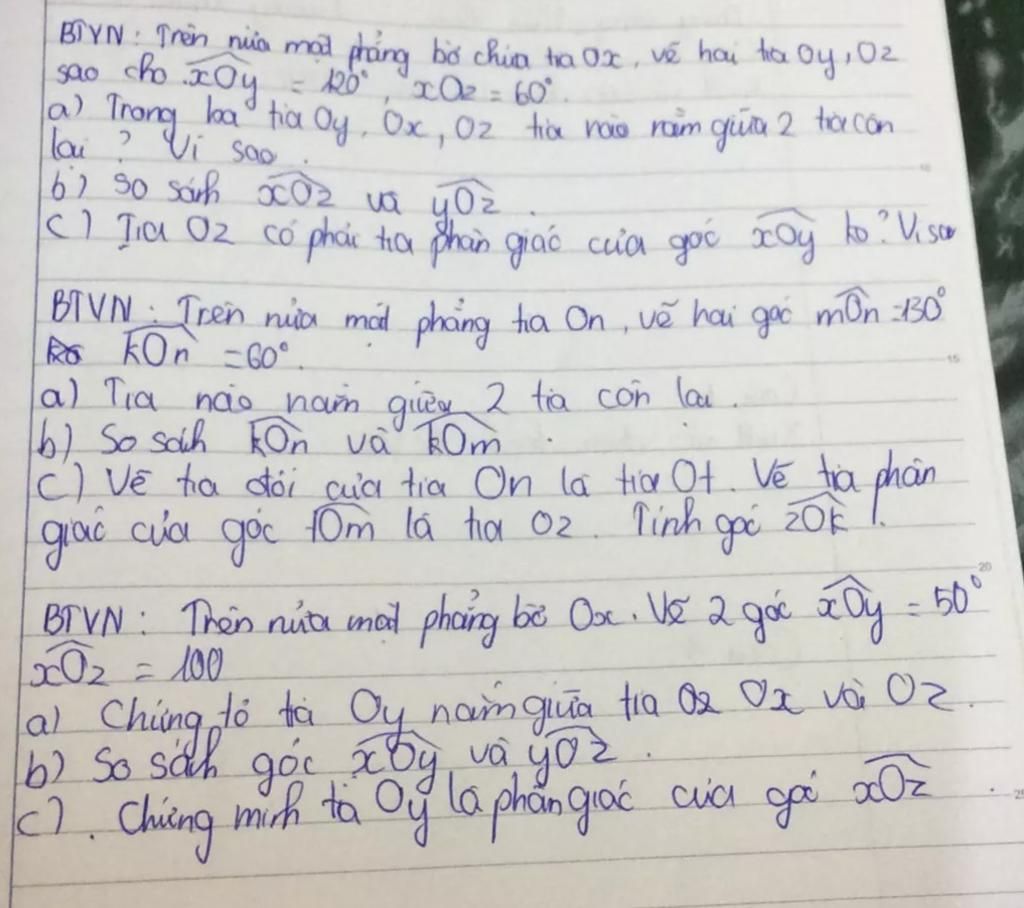 BTVN: Trên nửa mặt phẳng bờ chứa tia Ox, vẽ hai tia Oy, Oz
sao cho xOy = 120°, xOz = 60°.
a) Trong ba tia Oy, Ox, Oz tia nào nằm giữa 2 tia còn
lại? Vì sao.
b) So sánh xOz và yOz.
c) Tia Oz có phải tia phân giác của góc xOy ko? Vì sao
BTVN: Trên nửa mặt phẳng tia On, vẽ hai góc mOn = 130°
kOn = 60°.
a) Tia nào nằm giữa 2 tia còn lại.
b) So sánh kOn và kOm.
c) Vẽ tia đối của tia On là tia Ot. Vẽ tia phân
giác của góc tOm là tia Oz. Tính góc zOk!
20
BTVN: Trên nửa mặt phẳng bờ Ox. Vẽ 2 góc xOy = 50°
xOz = 100
a) Chứng tỏ tia Oy nằm giữa tia Oz Ox và Oz.
b) So sánh góc xOy và yOz.
c). Chứng minh tia Oy là phân giác của góc xOz.